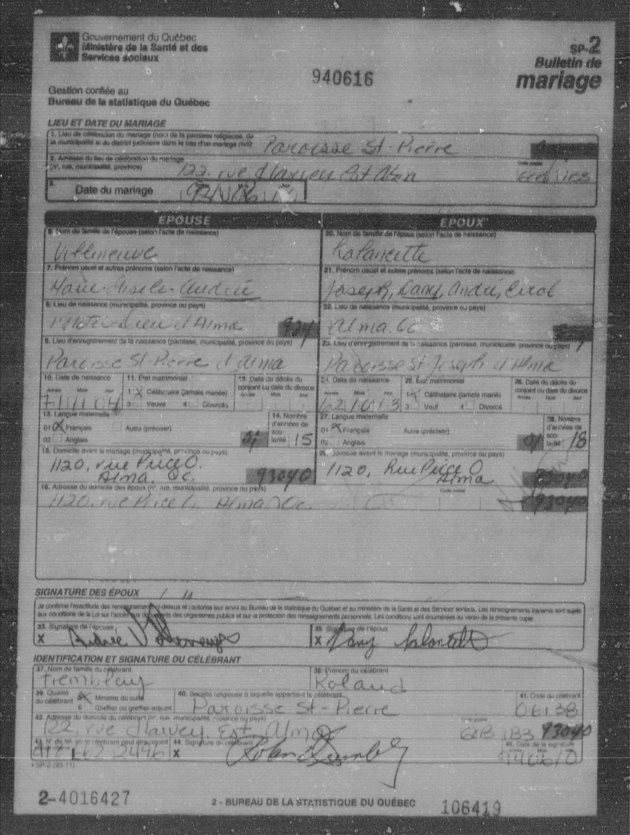 Gouvernement du Québec
Ministère de la Santé et des
Services sociaux
SP-2
Bulletin de
mariage
940616
Gestion confiée au
Bureau de la statistique du Québec
LIEU ET DATE DU MARIAGE
1. Lieu de célébration du mariage (nom de la paroisse religieuse, de
la municipalité et du district judiciaire dans le cas d'un mariage civil)
Paroisse St-Pierre
2. Adresse du lieu de célébration du mariage
(n°, rue, municipalité, province)
122, rue Harvey Est Alma
3.
Date du mariage
ÉPOUSE
ÉPOUX
6. Nom de famille de l'épouse (selon l'acte de naissance)
20. Nom de famille de l'époux (selon l'acte de naissance)
Villeneuve
7. Prénom usuel et autres prénoms (selon l'acte de naissance)
21. Prénom usuel et autres prénoms (selon l'acte de naissance)
Joseph, Dany, André,
8. Lieu de naissance (municipalité, province ou pays)
22. Lieu de naissance (municipalité, province ou pays)
d'Alma
Alma, Qc
9. Lieu d'enregistrement de la naissance (paroisse, municipalité, province ou pays)
23. Lieu d'enregistrement de la naissance (paroisse, municipalité, province ou pays)
Paroisse St-Pierre d'Alma
Paroisse St Joseph d'Alma
10. Date de naissance
11. État matrimonial
12. Date du décès du
conjoint ou date du divorce
24. Date de naissance
25. État matrimonial
26. Date du décès du
conjoint ou date du divorce
Année Mois Jour
1 X Célibataire (jamais mariée)
Célibataire (jamais marié)
3 Veuve 4 Divorcée
3 Veuf 4 Divorcé
13. Langue maternelle
14. Nombre
d'années de
scolarité
15
27. Langue maternelle
28. Nombre
d'années de
scolarité
18
01 X Français Autre (préciser)
02 Anglais
01 X Français Autre (préciser)
02 Anglais
15. Domicile avant le mariage (municipalité, province ou pays)
Domicile avant le mariage (municipalité, province ou pays)
1120, rue Price O.
Alma, Qc.
93040
1120, Rue Price O
Alma
93040
16. Adresse du domicile des époux (n°, rue, municipalité, province ou pays)
Code postal
1120, rue Price O, Alma, Qc.
93040
SIGNATURE DES ÉPOUX
Je confirme l'exactitude des renseignements ci-dessus et j'autorise leur envoi au Bureau de la statistique du Québec et au ministère de la Santé et des Services sociaux. Les renseignements transmis sont sujets
aux conditions de la Loi sur l'accès aux documents des organismes publics et sur la protection des renseignements personnels. Les conditions sont énumérées au verso de la présente copie.
Signature de l'épouse
Signature de l'époux
X
X
IDENTIFICATION ET SIGNATURE DU CÉLÉBRANT
37. Nom de famille du célébrant
38. Prénom du célébrant
Tremblay
Roland
39. Qualité
du célébrant
X Ministre du culte
Greffier ou greffier adjoint
40. Société religieuse à laquelle appartient le célébrant
Paroisse St-Pierre
41. Code du célébrant
06138
42. Adresse du domicile du célébrant (n°, rue, municipalité, province ou pays)
122, rue Harvey Est, Alma
G8B 1B3
93040
44. Signature du célébrant
X
Date de la signature
2-4016427
2 - BUREAU DE LA STATISTIQUE DU QUÉBEC
106419